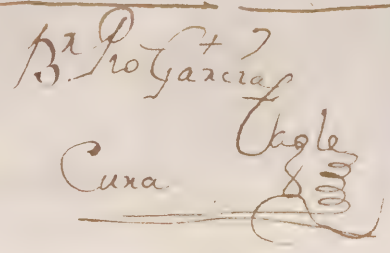 Br. Pro Garcia
Tagle
Cura